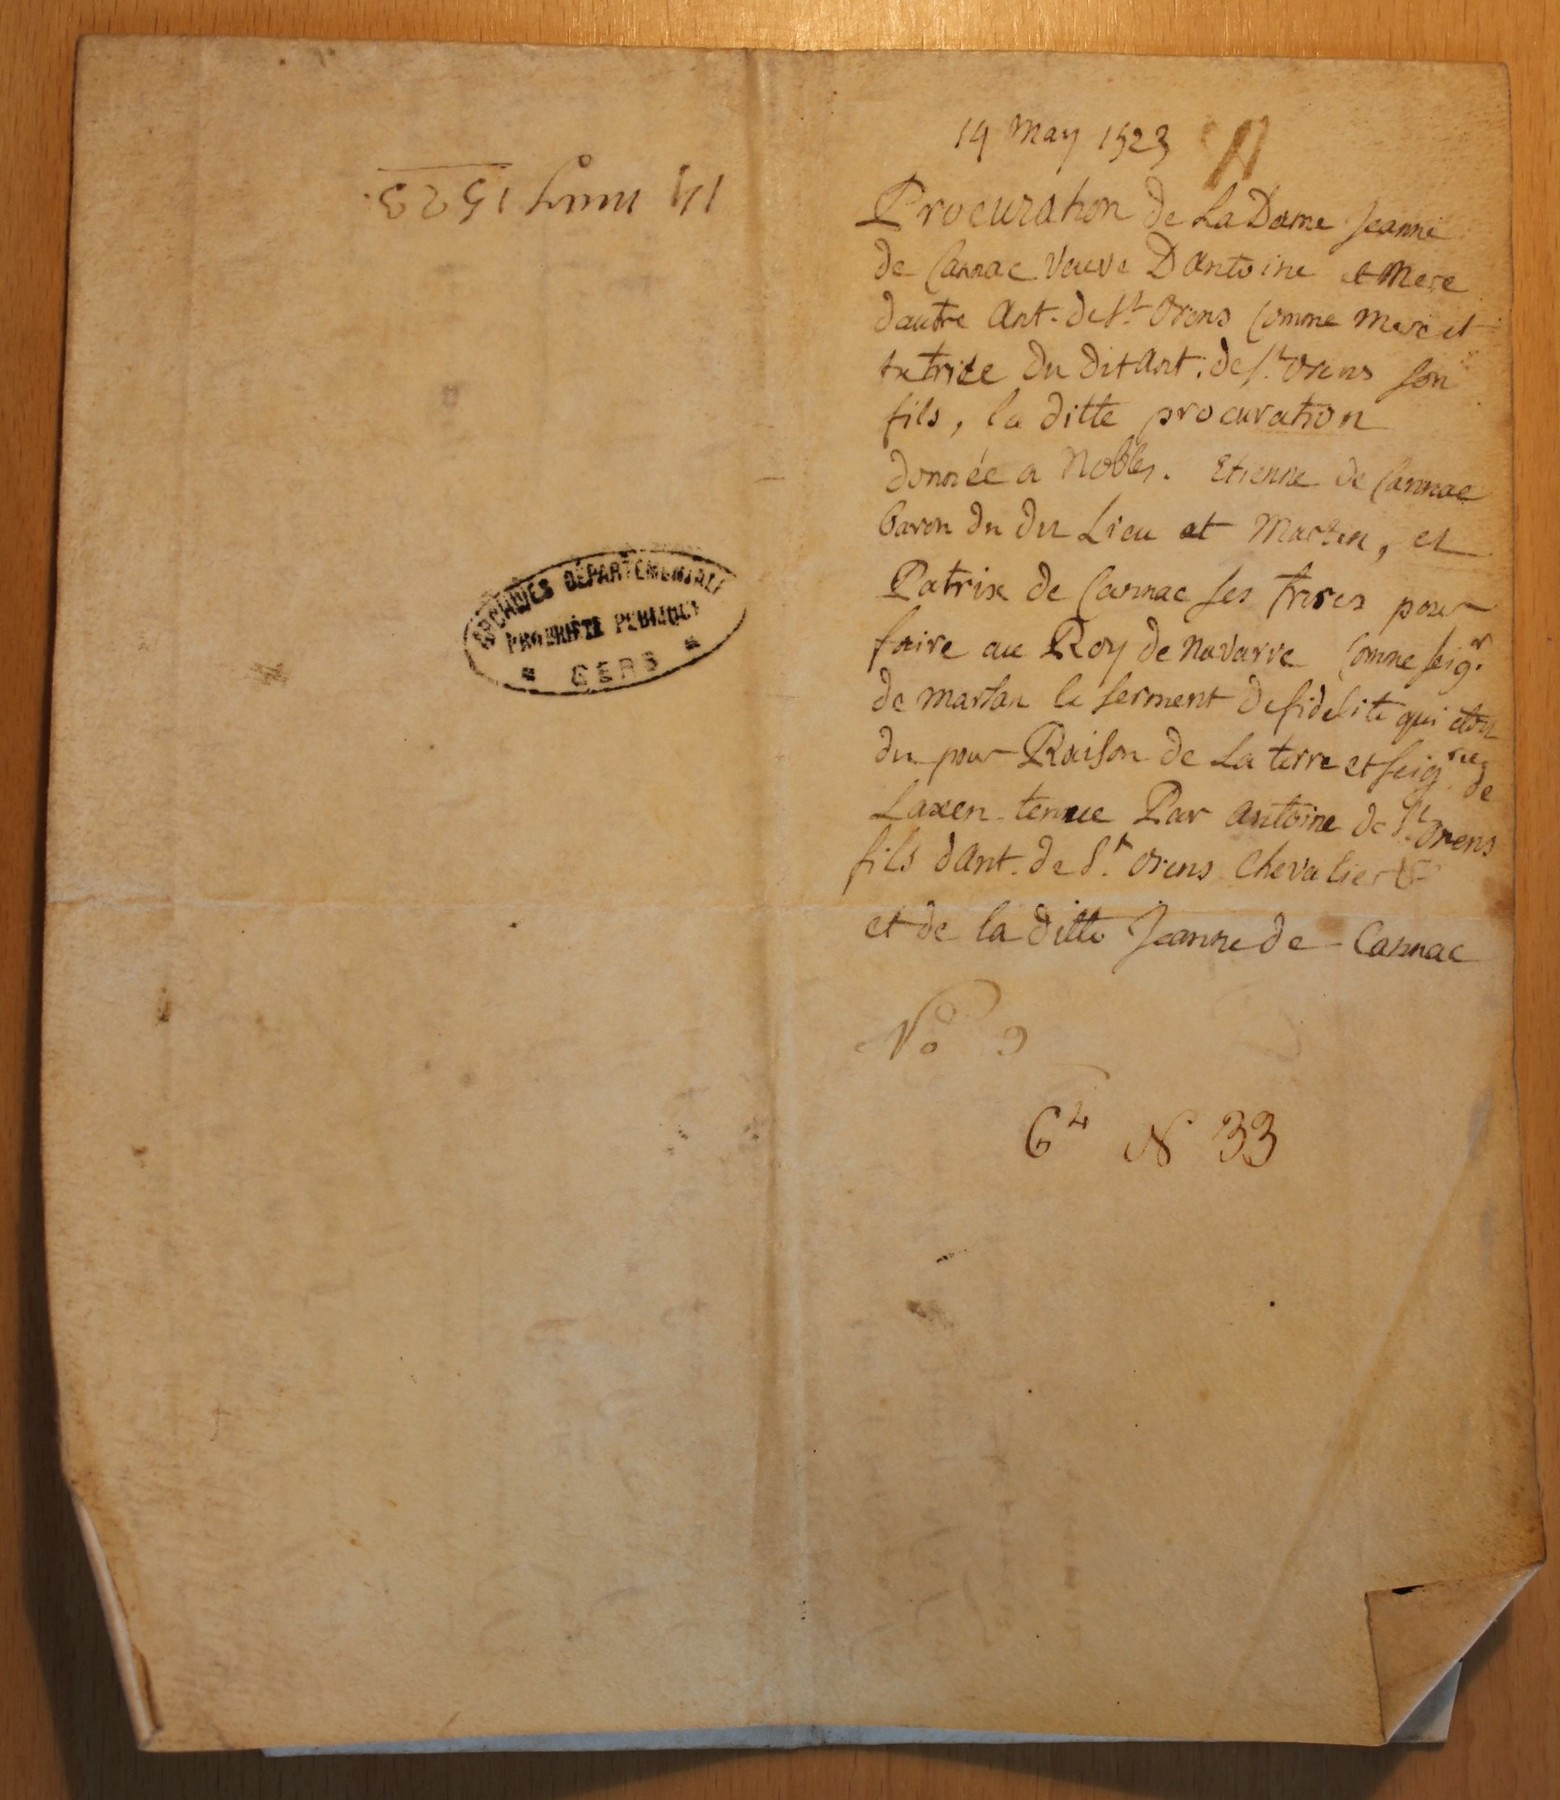 14 may 1523
14 May 1523
Procuration de La Dame Jeanne
de Carnac Veuve Dantoine et Mere
dautre Ant. de St. Orens Comme Mere et
tutrice du dit Ant. de St. Orens son
fils, la ditte procuration
donnée a Nobles. Etienne de Carnac
baron du du Lieu et Marten, et
Patrix de Carnac ses freres pour
faire au Roy de Navarre Comme seigr.
de marsan le serment de fidelite qui etoit
du pour Raison de La terre et seigrie de
Laxen tenue Par antoine de St. Orens
fils dAnt. de St. Orens Chevalier
et de la ditte Jeanne de Carnac
No 9
64 N 33
ARCHIVES DÉPARTEMENTALES
PROPRIÉTÉ PUBLIQUE
* GERS *